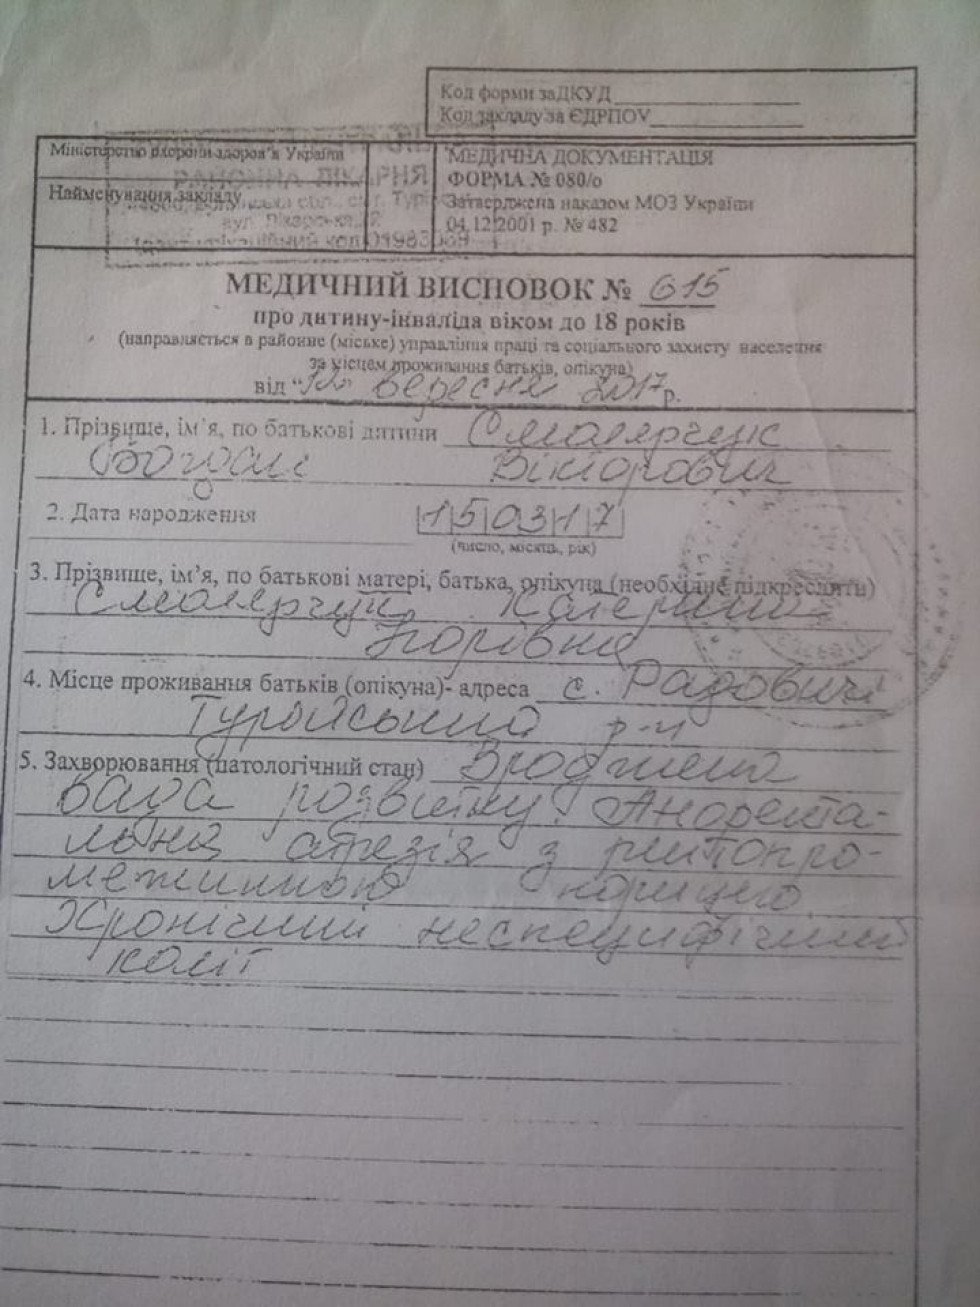 Код форми заДКУД
Код закладу за ЄДРПОУ
Міністерство охорони здоров'я України
Найменування закладу
РАЙОННА ЛІКАРНЯ
вул. Лікарська, 2
МЕДИЧНА ДОКУМЕНТАЦІЯ
ФОРМА № 080/о
Затверджена наказом МОЗ України
04.12.2001 р. № 482
МЕДИЧНИЙ ВИСНОВОК № 615
про дитину-інваліда віком до 18 років
(направляється в районне (міське) управління праці та соціального захисту населення
за місцем проживання батьків, опікуна)
від вересня 2017 р.
1. Прізвище, ім'я, по батькові дитини Смолярчук
Богдан Вікторович
2. Дата народження 150317
(число, місяць, рік)
3. Прізвище, ім'я, по батькові матері, батька, опікуна (необхідне підкреслити)
Смолярчук Катерина
Ігорівна
4. Місце проживання батьків (опікуна)- адреса с. Радовичі
Турійський р-н
5. Захворювання (патологічний стан) Вроджена
вада розвитку. Аноректа-
льна атрезія з
норицею.
Хронічний неспецифічний
коліт